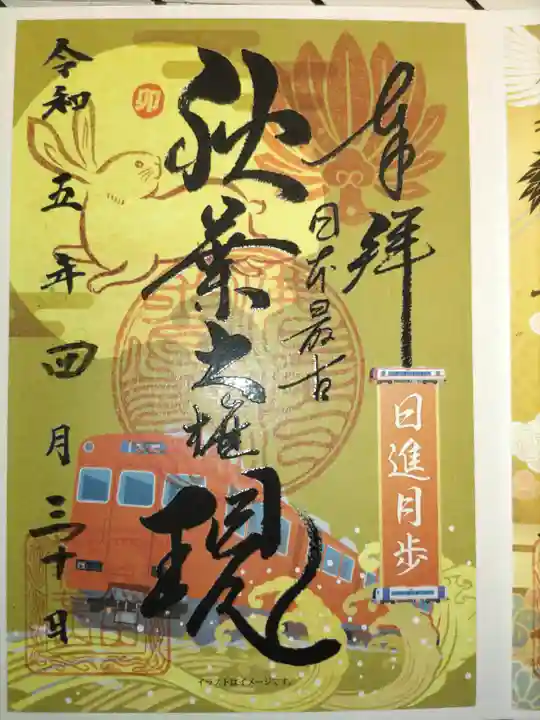 奉拝
日本最古
秋葉大権現
令和五年四月三十日
卯
日進月歩
イラストはイメージです。